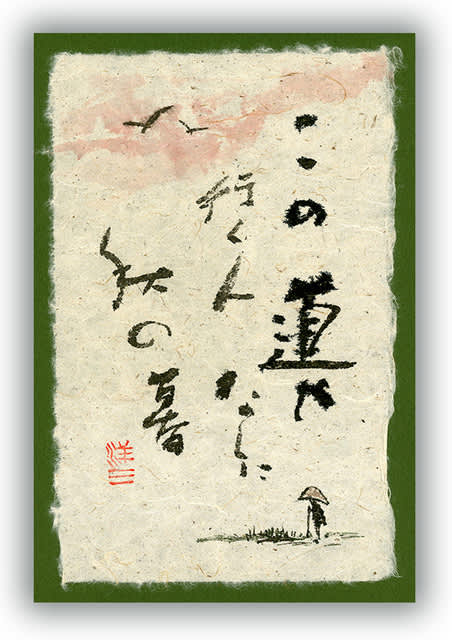 この道や
行く人なしに
秋の暮
洋三